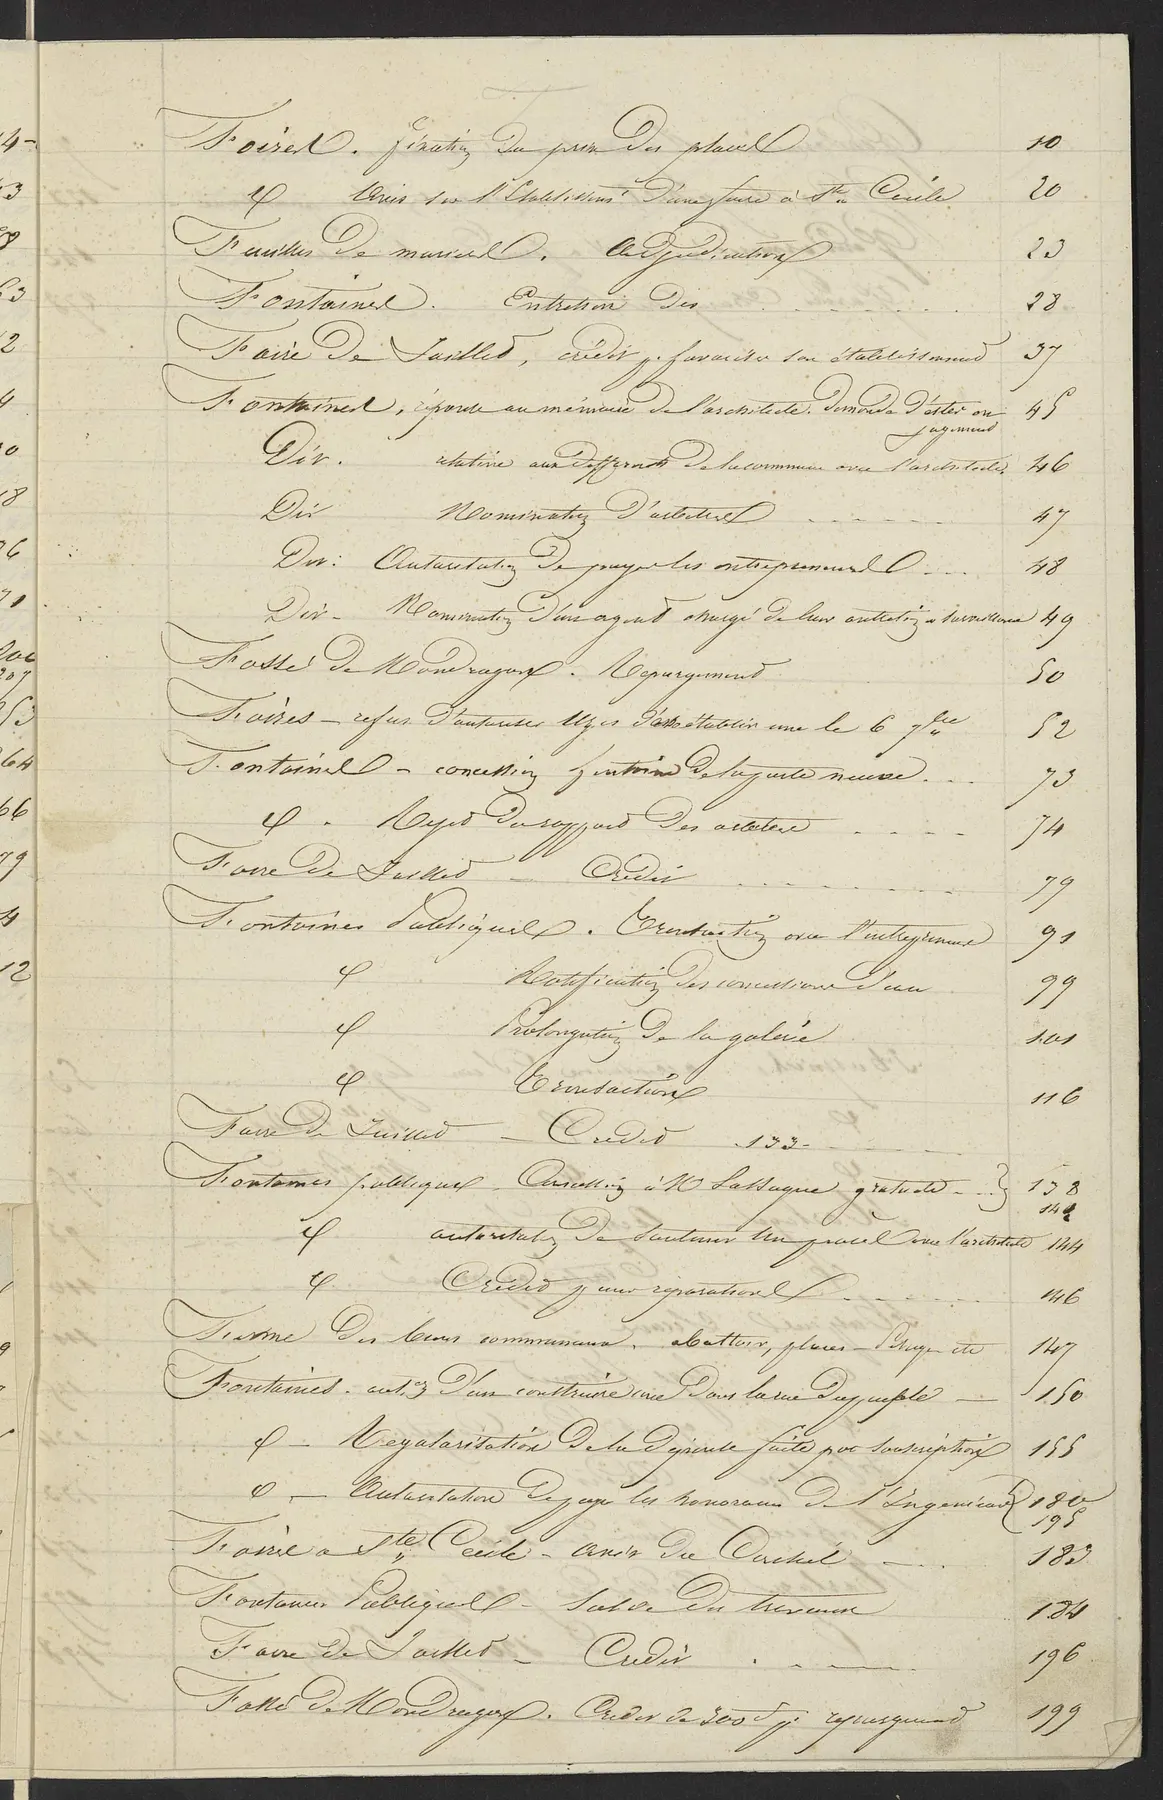 Foires. fixation du prix des places 10
d° avis sur l'Etablissmt d'une foire à Ste Cécile 20
Feuilles de murier. Adjudication 23
Fontaines. Entretien des . . . . . . . 28
Foire de Juillet, crédit pr favoriser son établissement 37
Fontaines, réponse au mémoire de l'architecte. demande d'ester en 45
jugement
Dit. relative aux différents de la commune avec l'architecte 46
Dit Nomination d'arbitres . . . . . 47
Dit: Autorisation de payer les entrepreneurs . . . 48
Dit - Nomination d'un agent chargé de leur entretien & surveillance 49
Fossé de Mondragon. Repurgement 50
Foires - refus d'autoriser Uzès d'en établir une le 6 7bre 52
Fontaines - concession fontaine de la porte neuve. . . 73
d° . Rejet du rapport des arbitres . . . . 74
Foire de Juillet - Crédit . . . . . . . 79
Fontaines Publiques. Transaction avec l'entrepreneur 91
d° Ratification des concessions d'eau 99
d° Prolongation de la galerie 101
d° Transaction 116
Foire de Juillet - Crédit 133
Fontaines publiques Concession à M Lassagne gratuite - . . } 138
142
d° autorisation de soutenir un procès avec l'architecte 144
d° Crédit pour réparations . . . . . 146
Ferme des biens communaux. abattoir, places - Pesage etc 147
Fontaines. auton d'en construire une dans la rue du 150
d° - Régularisation de la dépense faite par souscription 155
d° - Autorisation de payer les honoraires de l'Ingénieur { 180
195
Foire à Ste Cécile - avis du Conseil 183
Fontaines Publiques - Solde des travaux 184
Foire de Juillet - Crédit . . . . . 196
Fossé de Mondragon. Crédit de 300 f pr repurgement 199